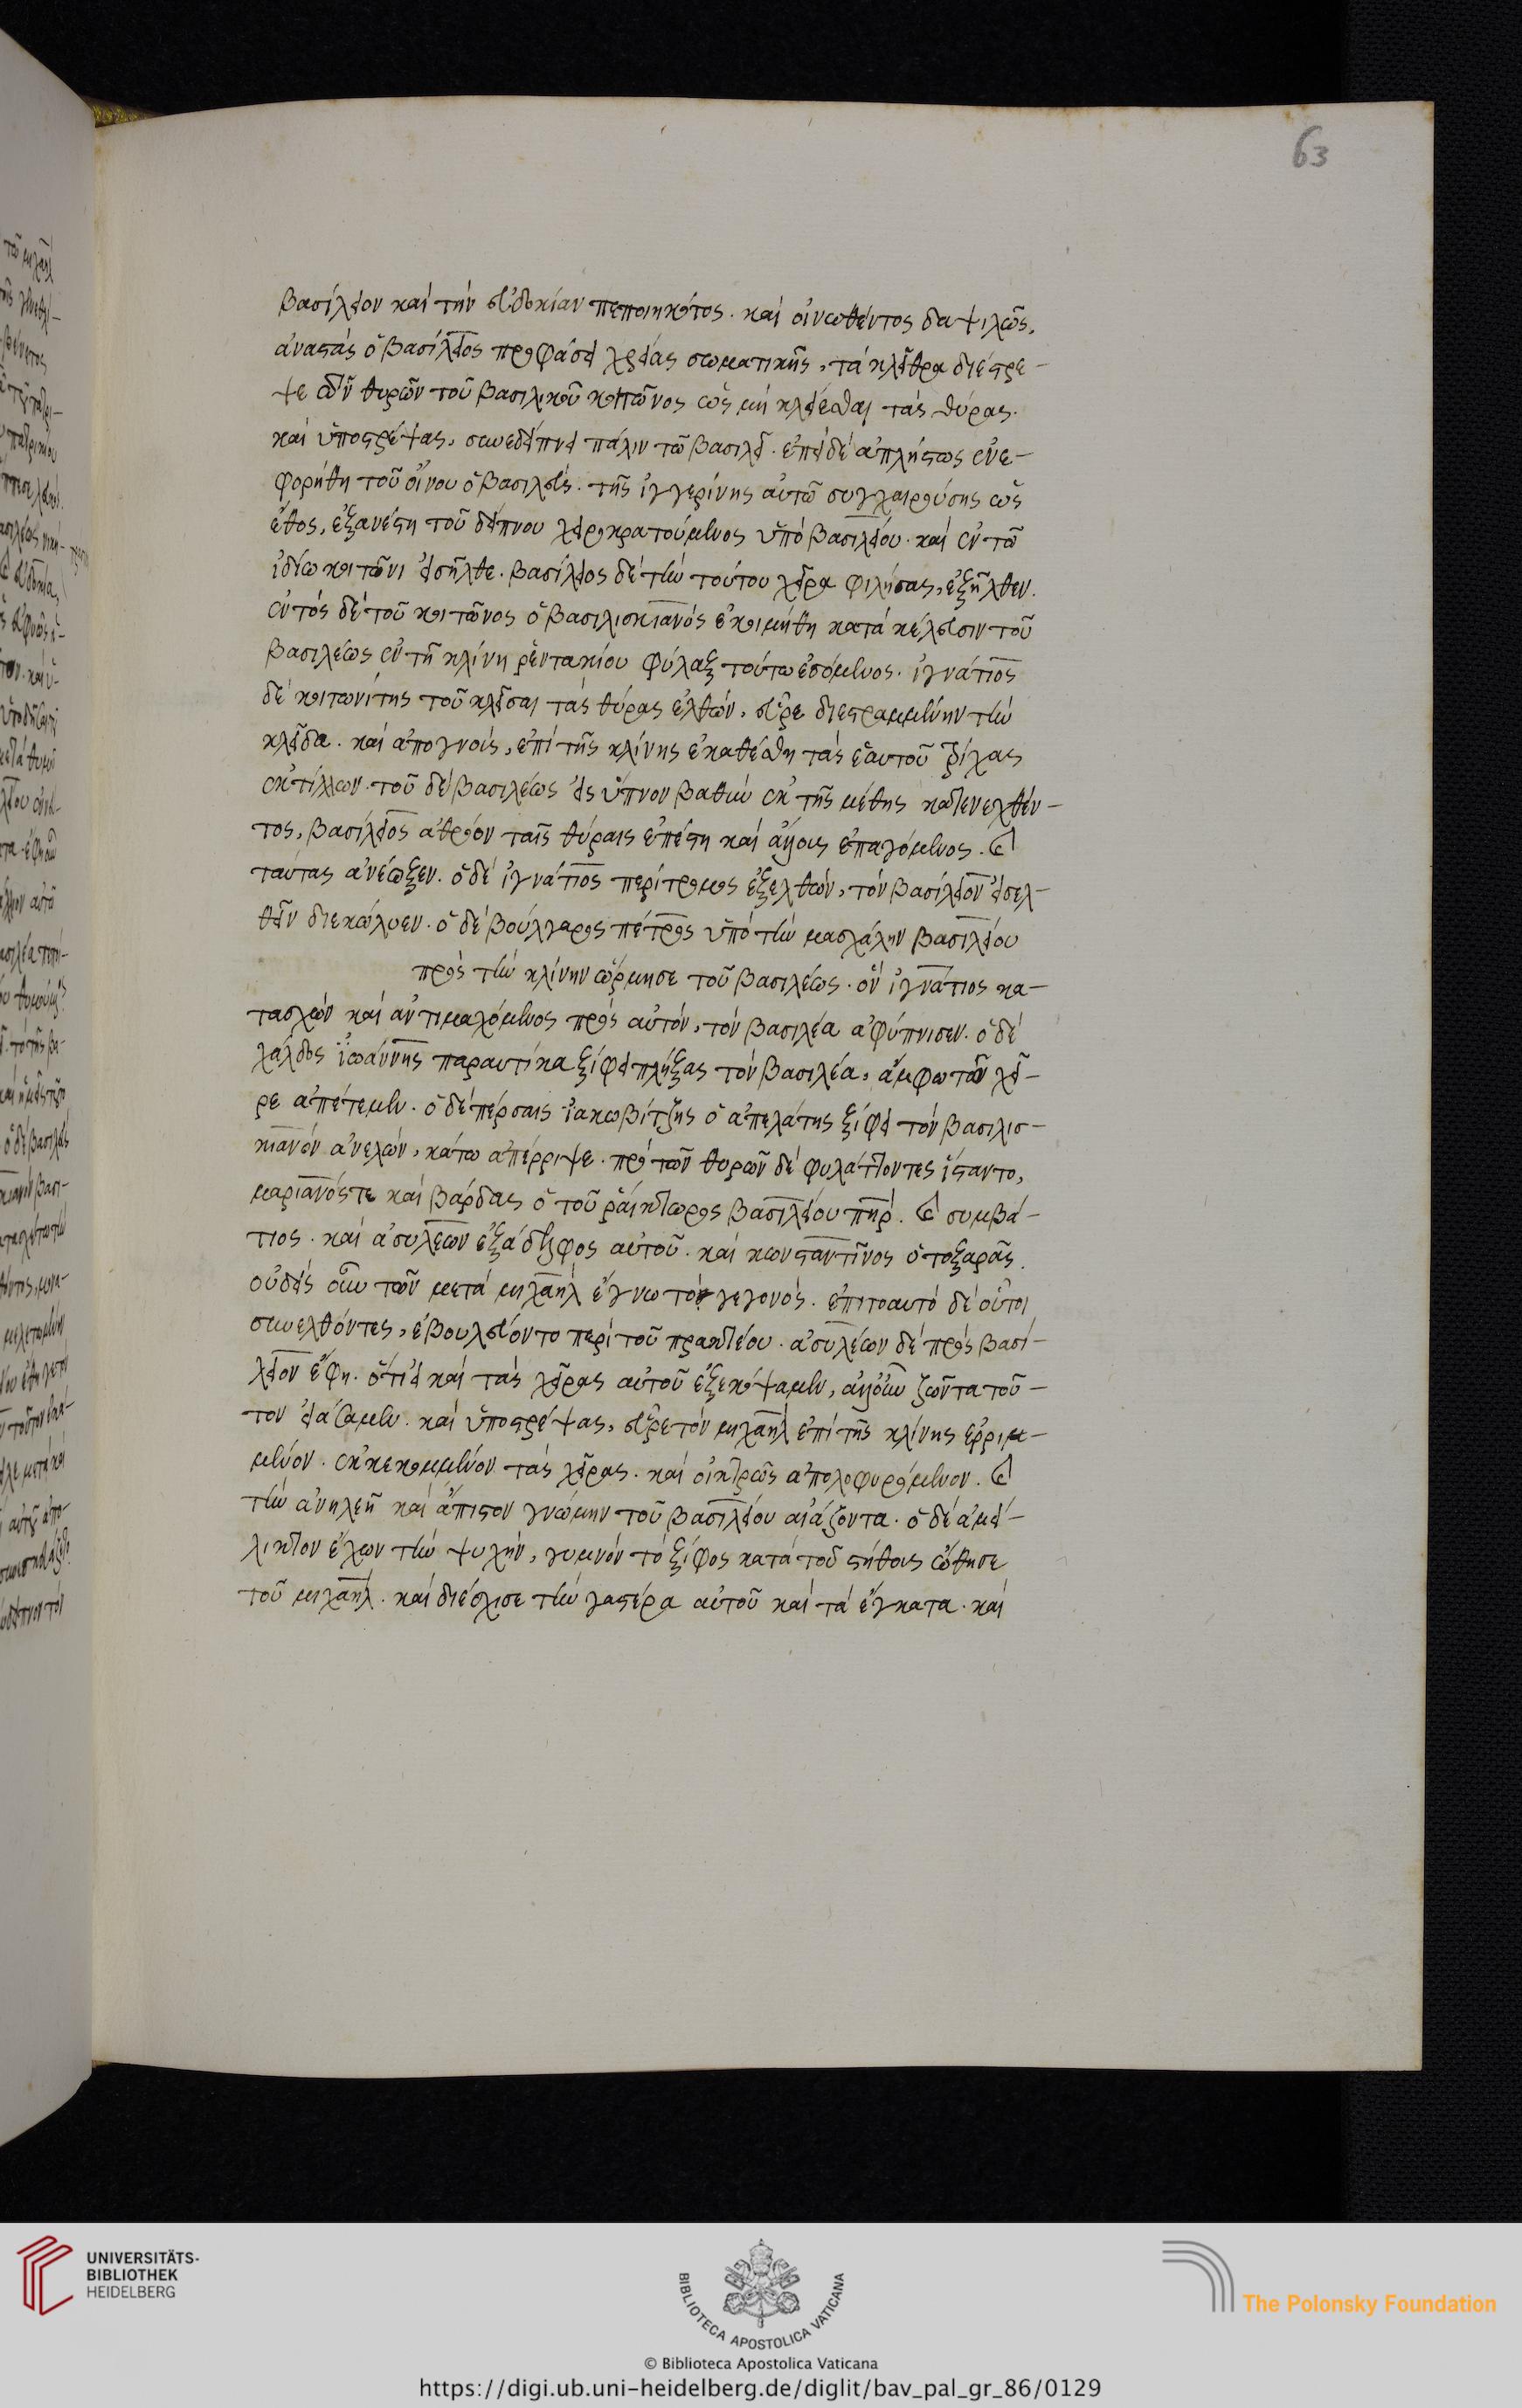 63
βασίλειον καὶ τὴν εὐδοκίαν πεποιηκότος. καὶ οἰνωθέντος δαψιλῶς,
ἀναστὰς ὁ βασίλειος προφάσει χρείας σωματικῆς, τὰ κλεῖθρα διέστρε-
ψε τῶν θυρῶν τοῦ βασιλικοῦ κοιτῶνος ὡς μὴ κλείεσθαι τὰς θύρας.
καὶ ὑποστρέψας, συνεδείπνει πάλιν τῶ βασιλεῖ. ἐπεὶ δὲ ἀπλήστως ἐνε-
φορήθη τοῦ οἴνου ὁ βασιλεὺς. τῆς ἰγγερίνης αὐτῶ συγχαιρούσης ὡς
ἔθος, ἐξανέστη τοῦ δείπνου χειροκρατούμενος ὑπὸ βασιλείου. καὶ ἐν τῶ
ἰδίω κοιτῶνι εἰσῆλθε. βασίλειος δὲ τὴν τούτου χεῖρα φιλήσας, ἐξῆλθεν.
ἐντὸς δὲ τοῦ κοιτῶνος ὁ βασιλισκιανὸς ἐκοιμήθη κατὰ κέλευσιν τοῦ
βασιλέως ἐν τῆ κλίνη ῥεντακίου φύλαξ τούτω ἐσόμενος. ἰγνάτιος
δὲ κοιτωνίτης τοῦ κλεῖσαι τὰς θύρας ἐλθὼν, εὗρε διεστραμμένην τὴν
κλεῖδα. καὶ ἀπογνοὺς, ἐπὶ τῆς κλίνης ἐκαθέσθη τὰς ἑαυτοῦ τρίχας
ἐκτίλλων. τοῦ δὲ βασιλέως εἰς ὕπνον βαθὺν ἐκ τῆς μέθης κατενεχθέν-
τος, βασίλειος ἀθρόον ταῖς θύραις ἐπέστη καὶ ἄλλους ἐπαγόμενος. καὶ
ταύτας ἀνέωξεν. ὁ δὲ ἰγνάτιος περίτρομος ἐξελθὼν, τὸν βασίλειον εἰσελ-
θεῖν διεκώλυεν. ὁ δὲ βούλγαρος πέτρος ὑπὸ τὴν μασχάλην βασιλείου
πρὸς τὴν κλίνην ὥρμησε τοῦ βασιλέως. ὃν ἰγνάτιος κα-
τασχὼν καὶ ἀντιμαχόμενος πρὸς αὐτὸν, τὸν βασιλέα ἀφύπνισεν. ὁ δὲ
χάλδος ἰωάννης παραυτίκα ξίφει πλήξας τὸν βασιλέα, ἄμφω τὼν χεῖ-
ρε ἀπέτεμεν. ὁ δὲ πέρσαις ἰακωβίτζης ὁ ἀπελάτης ξίφει τὸν βασιλισ-
κιανὸν ἀνελὼν, κάτω ἀπέρριψε. πρὸ τῶν θυρῶν δὲ φυλάττοντες ἵσταντο,
μαριανός τε καὶ βάρδας ὁ τοῦ ῥαίκτωρος βασιλείου πηρ. καὶ συμβά-
τιος. καὶ ἀσυλέων ἐξάδελφος αὐτοῦ. καὶ κωνσταντῖνος ὁ τοξαρᾶς.
οὐδεὶς οὖν τῶν μετὰ μιχαὴλ ἔγνω τὸ γεγονὸς. ἐπιτοαυτὸ δὲ οὗτοι
συνελθόντες, ἐβουλεύοντο περὶ τοῦ πρακτέου. ἀσυλέων δὲ πρὸς βασί-
λειον ἔφη. ὅτι εἰ καὶ τὰς χεῖρας αὐτοῦ ἐξεκόψαμεν, ἀλλ' οὖν ζῶντα τοῦ-
τον εἰάσαμεν. καὶ ὑποστρέψας, εὗρε τὸν μιχαὴλ ἐπὶ τῆς κλίνης ἐρριμ-
μένον. ἐκκεκομμένον τὰς χεῖρας. καὶ οἰκτρῶς ἀπολοφυρόμενον. καὶ
τὴν ἀνηλεῆ καὶ ἄπιστον γνώμην τοῦ βασιλείου αἰάζοντα. ὁ δὲ ἀμεί-
λικτον ἔχων τὴν ψυχὴν, γυμνὸν τὸ ξίφος κατὰ τοῦ στήθους ὤθησε
τοῦ μιχαὴλ. καὶ διέσχισε τὴν γαστέρα αὐτοῦ καὶ τὰ ἔγκατα. καὶ
UNIVERSITÄTS-
BIBLIOTHEK
HEIDELBERG
BIBLIOTECA APOSTOLICA VATICANA
The Polonsky Foundation
© Biblioteca Apostolica Vaticana
https://digi.ub.uni-heidelberg.de/diglit/bav_pal_gr_86/0129